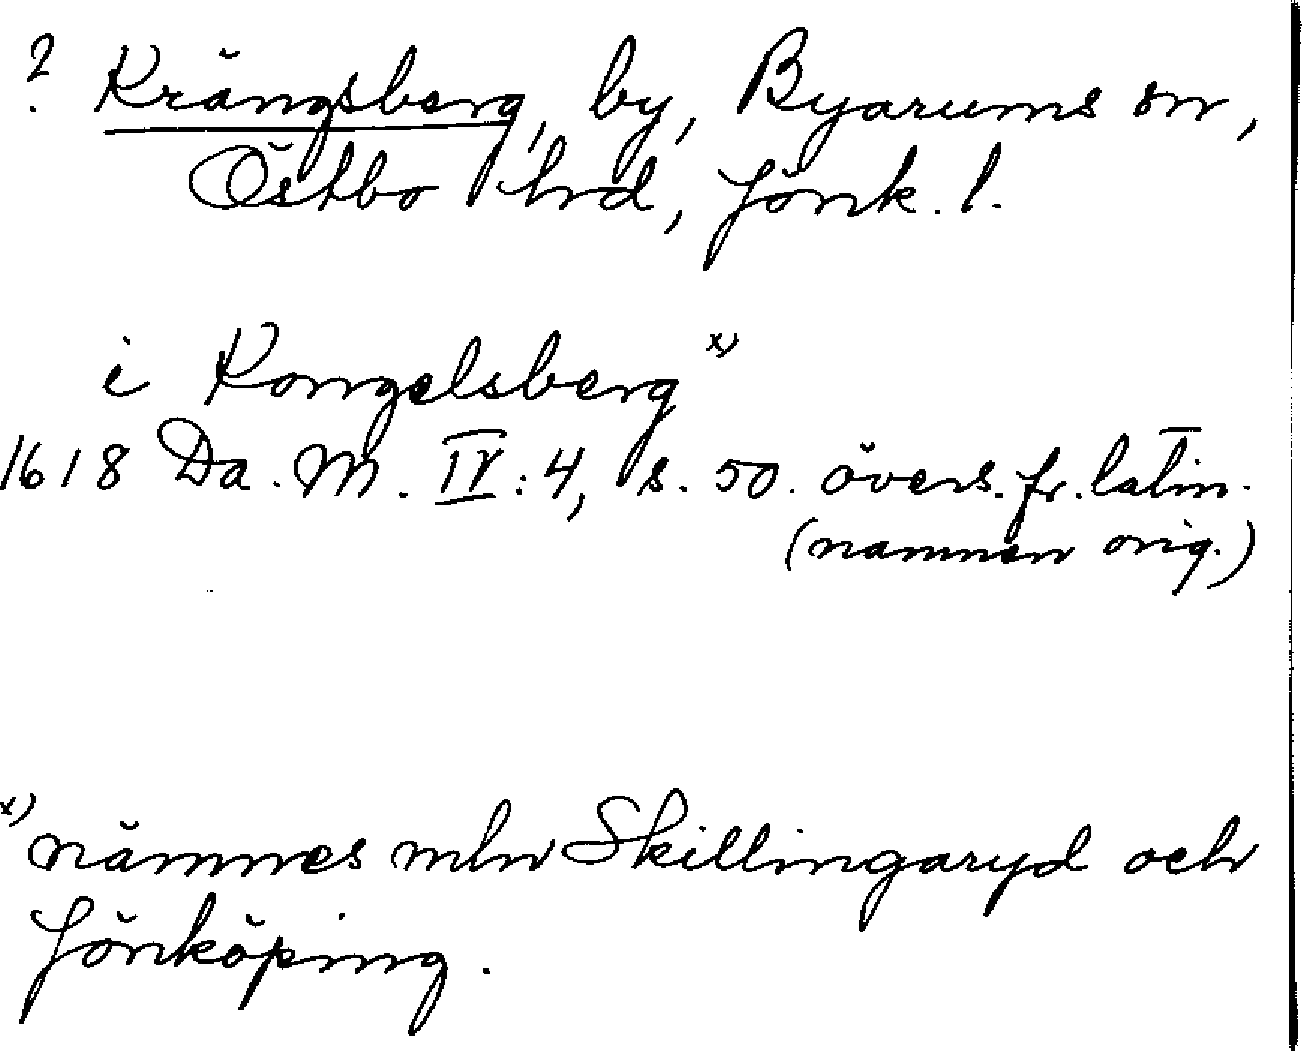 ? Krängsberg, by, Byarums sn,
Östbo hrd, Jönk. l.
i Kongelsberg x)
1618 Da. M. IV: 4, s. 50. övers. fr. latin.
(namnen orig.)
x) nämnes mln Skillingaryd och
Jönköping.